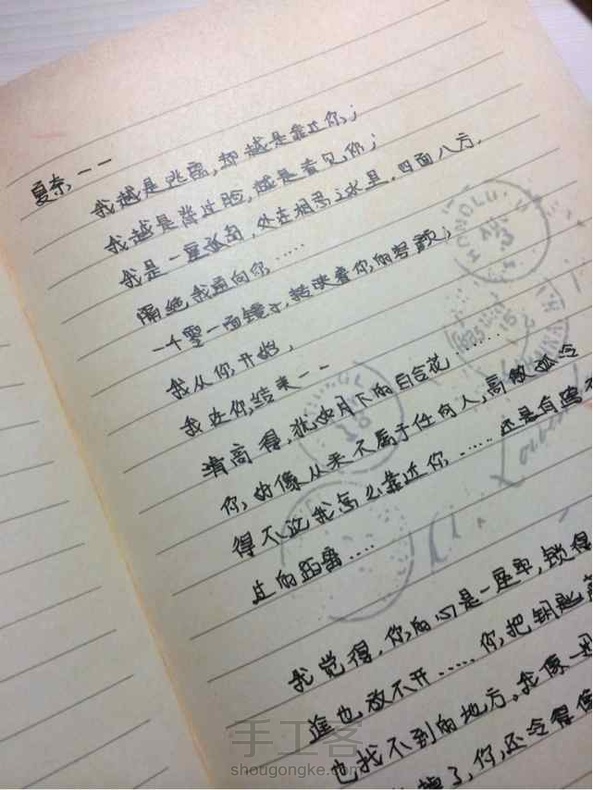 夏奈，一一
我越是逃离，却越是靠近你；
我越是背过脸，越是看见你；
我是一座孤岛，处在相思之水里，四面八方，
隔绝我通向你……
一千零一面镜子，转映着你的容颜；
我从你，开始，
我在你，结束一一
清高得，犹如月下的百合花………
你，好像从来不属于任何人，高傲孤冷
得不论我怎么靠近你……还是有
过的距离……
我觉得，你，的心是一座牢，锁得
谁也放不开……你，把钥匙
也找不到的地方。我像一
了，你，还冷得像
HONOLULU
AU
3
15
手工客
shougongke.com